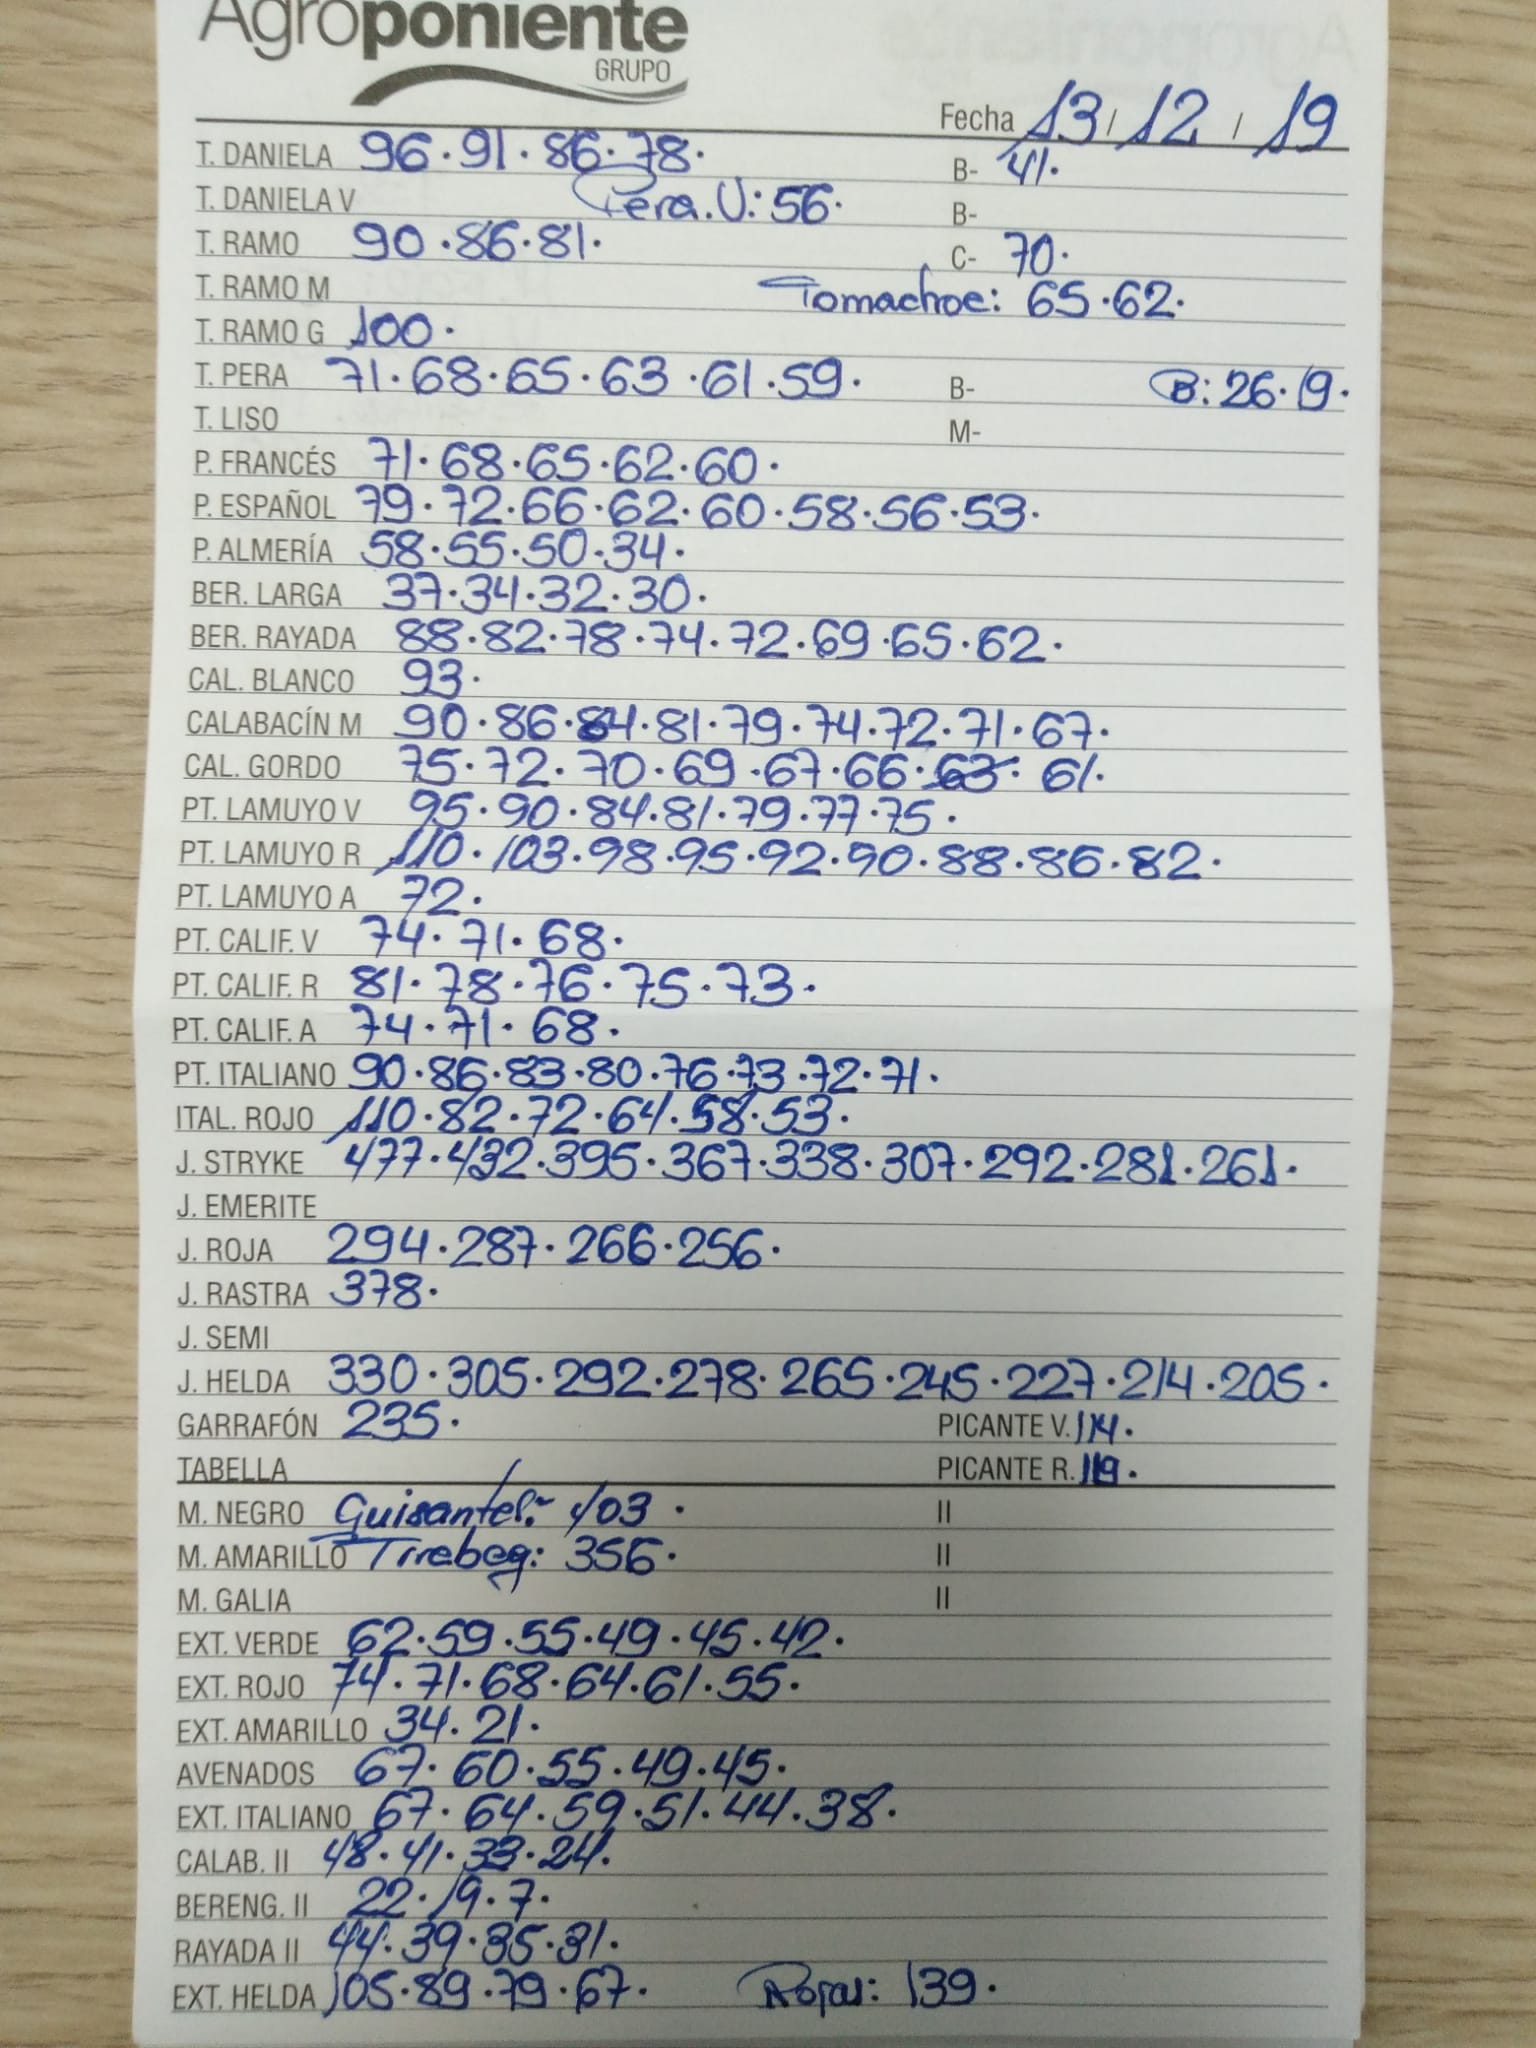 Agroponiente
GRUPO
Fecha 13 / 12 / 19
T. DANIELA 96.91.86.78. B- 41.
T. DANIELA V Pera.V: 56. B-
T. RAMO 90.86.81. C- 70.
T. RAMO M Tomachoc: 65.62.
T. RAMO G 100.
T. PERA 71.68.65.63.61.59. B- B: 26.19.
T. LISO M-
P. FRANCÉS 71.68.65.62.60.
P. ESPAÑOL 79.72.66.62.60.58.56.53.
P. ALMERÍA 58.55.50.34.
BER. LARGA 37.34.32.30.
BER. RAYADA 88.82.78.74.72.69.65.62.
CAL. BLANCO 93.
CALABACÍN M 90.86.84.81.79.74.72.71.67.
CAL. GORDO 75.72.70.69.67.66.63.61.
PT. LAMUYO V 95.90.84.81.79.77.75.
PT. LAMUYO R 110.103.98.95.92.90.88.86.82.
PT. LAMUYO A 72.
PT. CALIF. V 74.71.68.
PT. CALIF. R 81.78.76.75.73.
PT. CALIF. A 74.71.68.
PT. ITALIANO 90.86.83.80.76.73.72.71.
ITAL. ROJO 110.82.72.64.58.53.
J. STRYKE 477.432.395.367.338.307.292.281.261.
J. EMERITE
J. ROJA 294.287.266.256.
J. RASTRA 378.
J. SEMI
J. HELDA 330.305.292.278.265.245.227.214.205.
GARRAFÓN 235. PICANTE V. 114.
TABELLA PICANTE R. 119.
M. NEGRO Guisantes: 103. II
M. AMARILLO Tirebeq: 356. II
M. GALIA II
EXT. VERDE 62.59.55.49.45.42.
EXT. ROJO 74.71.68.64.61.55.
EXT. AMARILLO 34.21.
AVENADOS 67.60.55.49.45.
EXT. ITALIANO 67.64.59.51.44.38.
CALAB. II 48.41.33.24.
BERENG. II 22.19.7.
RAYADA II 44.39.35.31.
EXT. HELDA 105.89.79.67. Rojas: 139.